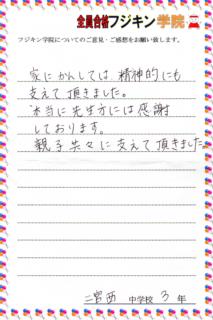 全員合格フジキン学院
フジキン学院についてのご意見・ご感想をお願い致します。
家にかんしては 精神的にも
支えて頂きました。
本当に先生方には感謝
しております。
親子共々に支えて頂きました
二宮西 中学校 3 年